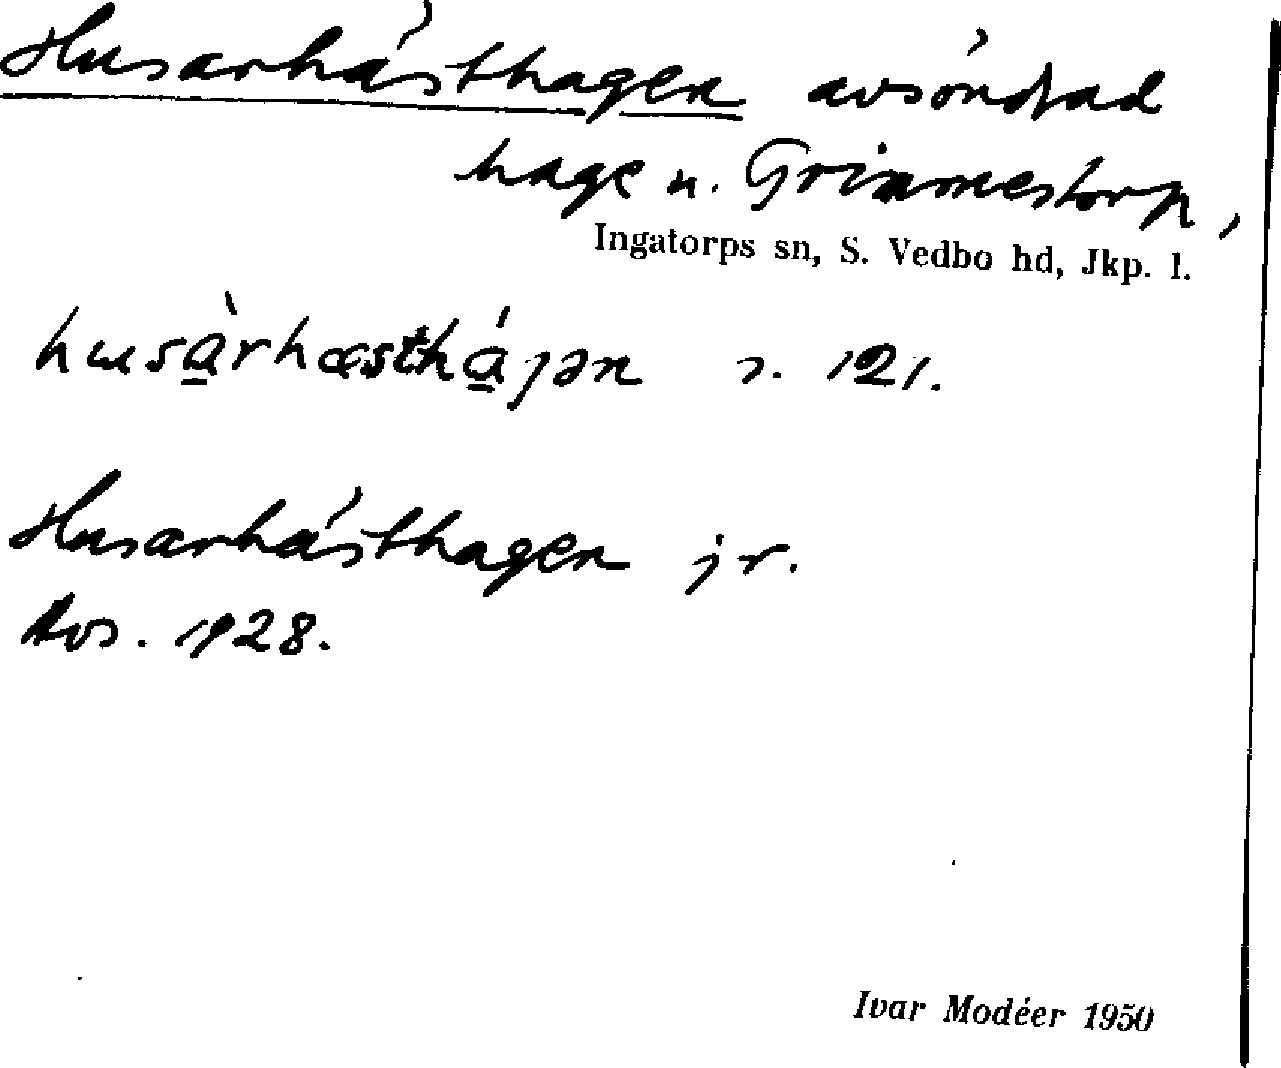 Husarhästhagen avsöndrad
hage u. Grimmestorp,
Ingatorps sn, S. Vedbo hd, Jkp. l.
husà̱rhæsthá̱ɡən s. 121.
Husarhästhagen jr.
Avs. 1928.
Ivar Modéer 1950